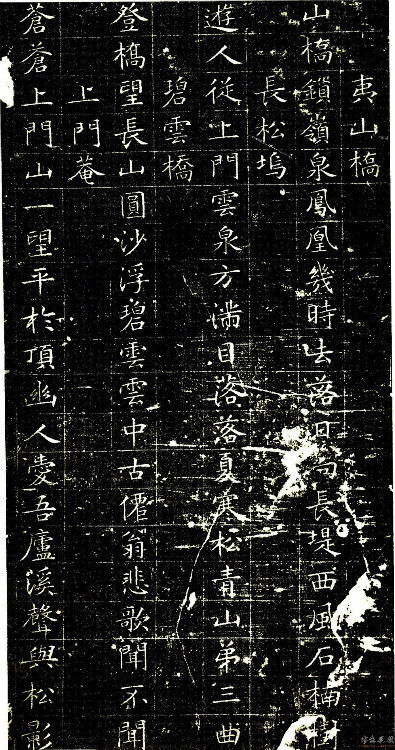 夷山橋
山橋鎖嶺泉鳳凰幾時去落日與長堤西風石楠樹
長松塢
遊人從上門雲泉方滿目落落夏寒松青山第三曲
碧雲橋
登橋望長山圓沙浮碧雲雲中古僊翁悲歌聞不聞
上門菴
蒼蒼上門山一望平於頂幽人愛吾廬溪聲與松影